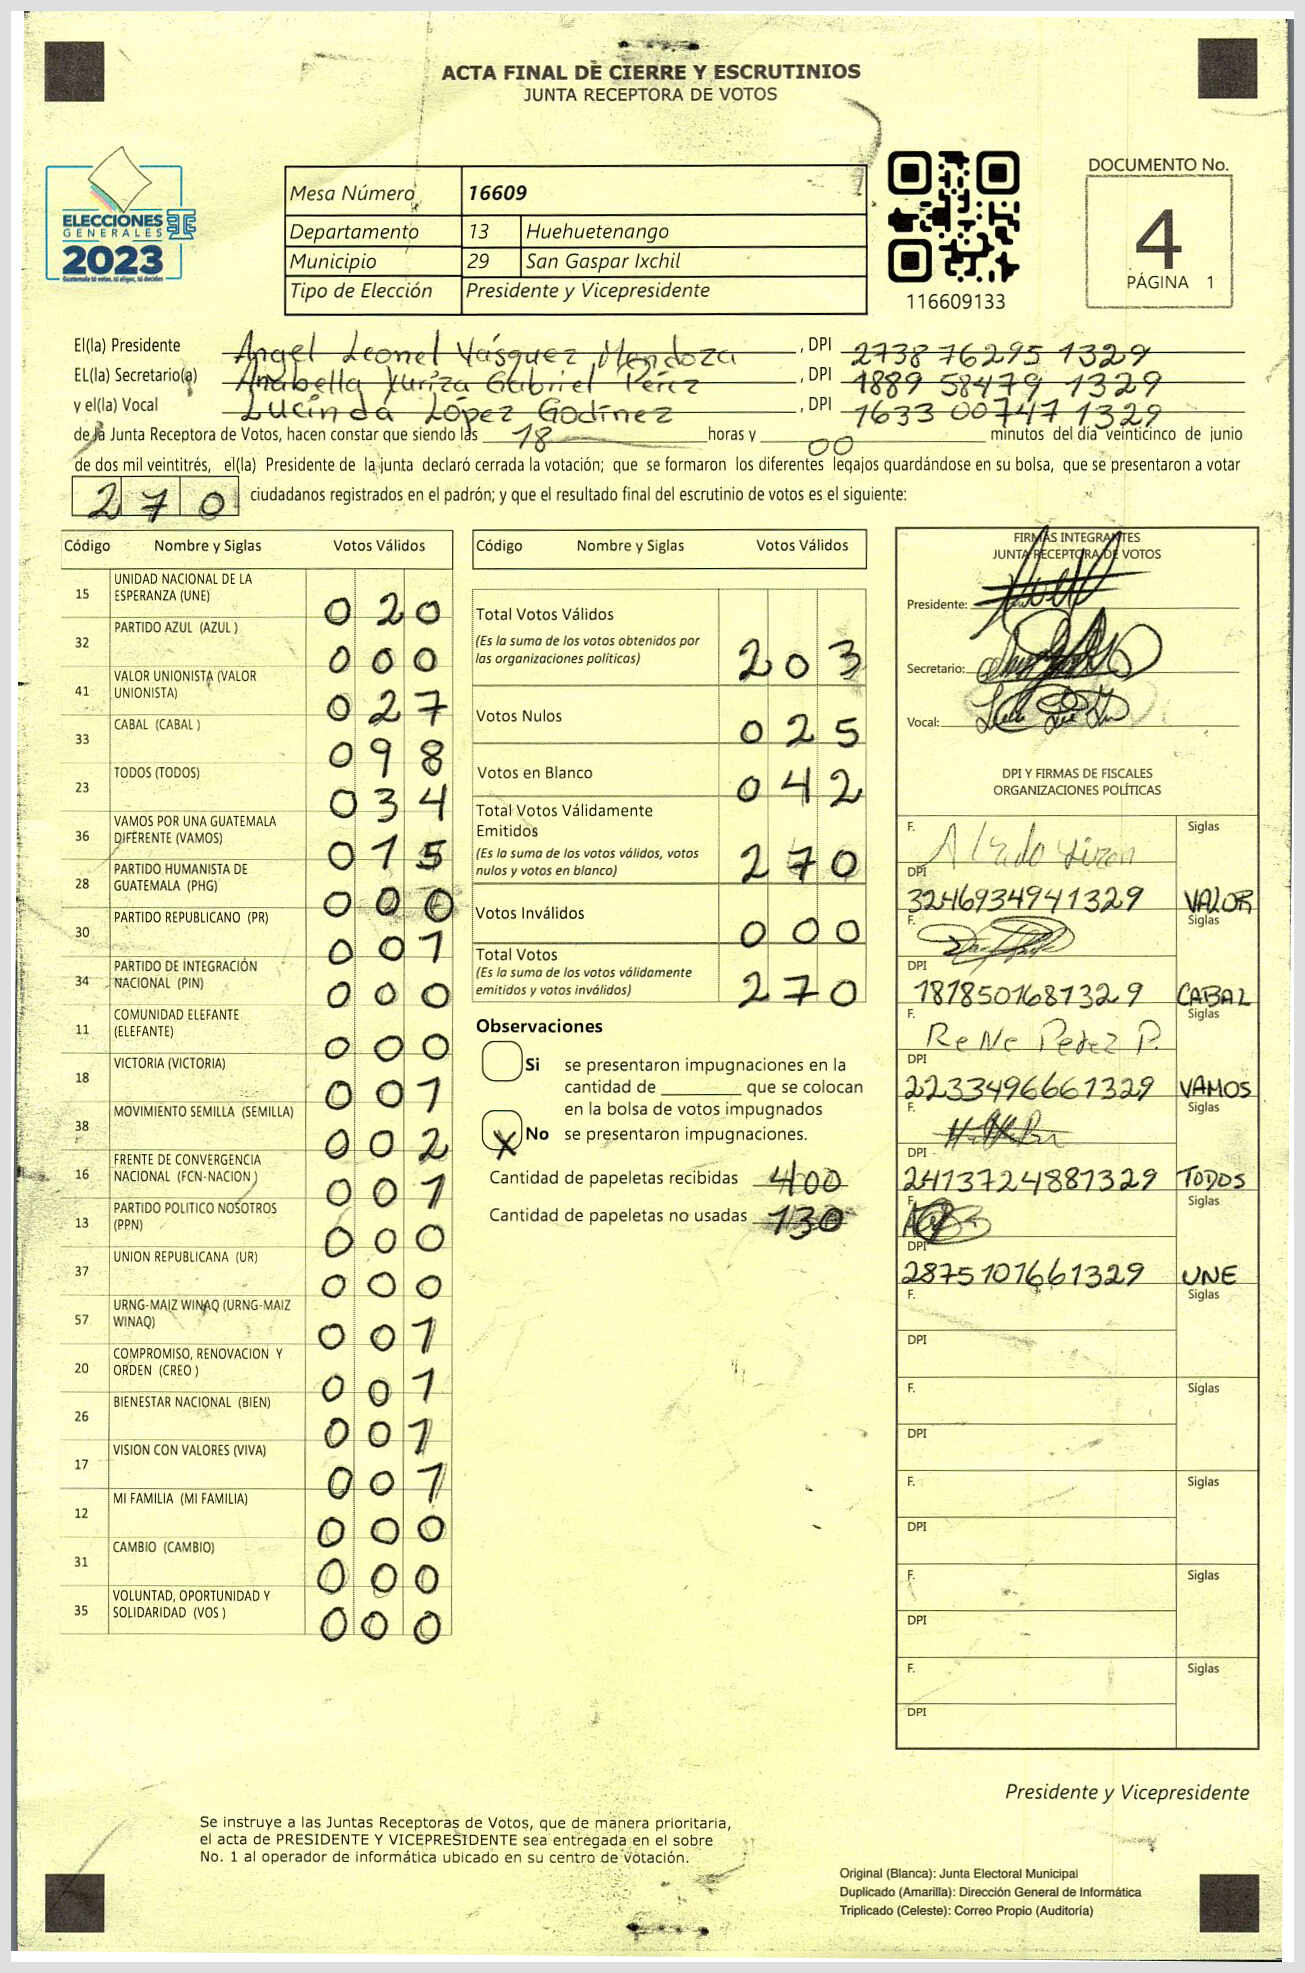 ACTA FINAL DE CIERRE Y ESCRUTINIOS
JUNTA RECEPTORA DE VOTOS
ELECCIONES
GENERALES
2023
Guatemala tú votas, tú eliges, tú decides
Mesa Número 16609
Departamento 13 Huehuetenango
Municipio 29 San Gaspar Ixchil
Tipo de Elección Presidente y Vicepresidente
116609133
DOCUMENTO No.
4
PÁGINA 1
El(la) Presidente Angel Leonel Vásquez Mendoza, DPI 2738 76295 1329
EL(la) Secretario(a) Anabella Yuriza Gabriel Pérez, DPI 1889 58479 1329
y el(la) Vocal Lucinda López Godínez, DPI 1633 00747 1329
de la Junta Receptora de Votos, hacen constar que siendo las 18 horas y 00 minutos del día veinticinco de junio
de dos mil veintitrés, el(la) Presidente de la junta declaró cerrada la votación; que se formaron los diferentes legajos guardándose en su bolsa, que se presentaron a votar
270 ciudadanos registrados en el padrón; y que el resultado final del escrutinio de votos es el siguiente:
Código Nombre y Siglas Votos Válidos
15 UNIDAD NACIONAL DE LA ESPERANZA (UNE) 020
32 PARTIDO AZUL (AZUL ) 000
41 VALOR UNIONISTA (VALOR UNIONISTA) 027
33 CABAL (CABAL ) 098
23 TODOS (TODOS) 034
36 VAMOS POR UNA GUATEMALA DIFERENTE (VAMOS) 015
28 PARTIDO HUMANISTA DE GUATEMALA (PHG) 000
30 PARTIDO REPUBLICANO (PR) 001
34 PARTIDO DE INTEGRACIÓN NACIONAL (PIN) 000
11 COMUNIDAD ELEFANTE (ELEFANTE) 000
18 VICTORIA (VICTORIA) 001
38 MOVIMIENTO SEMILLA (SEMILLA) 002
16 FRENTE DE CONVERGENCIA NACIONAL (FCN-NACION ) 001
13 PARTIDO POLITICO NOSOTROS (PPN) 000
37 UNION REPUBLICANA (UR) 000
57 URNG-MAIZ WINAQ (URNG-MAIZ WINAQ) 001
20 COMPROMISO, RENOVACION Y ORDEN (CREO ) 001
26 BIENESTAR NACIONAL (BIEN) 001
17 VISION CON VALORES (VIVA) 001
12 MI FAMILIA (MI FAMILIA) 000
31 CAMBIO (CAMBIO) 000
35 VOLUNTAD, OPORTUNIDAD Y SOLIDARIDAD (VOS ) 000
Código Nombre y Siglas Votos Válidos
Total Votos Válidos 203
(Es la suma de los votos obtenidos por
las organizaciones políticas)
Votos Nulos 025
Votos en Blanco 042
Total Votos Válidamente
Emitidos 270
(Es la suma de los votos válidos, votos
nulos y votos en blanco)
Votos Inválidos 000
Total Votos 270
(Es la suma de los votos válidamente
emitidos y votos inválidos)
Observaciones
Si se presentaron impugnaciones en la
cantidad de ________ que se colocan
en la bolsa de votos impugnados
X No se presentaron impugnaciones.
Cantidad de papeletas recibidas 400
Cantidad de papeletas no usadas 130
FIRMAS INTEGRANTES
JUNTA RECEPTORA DE VOTOS
Presidente:
Secretario:
Vocal:
DPI Y FIRMAS DE FISCALES
ORGANIZACIONES POLÍTICAS
F. Siglas
DPI 3246934941329 VALOR
F. Siglas
DPI 1818501681329 CABAL
F. ReNe Perez P. Siglas
DPI 2233496661329 VAMOS
F. Siglas
DPI 2413724881329 TODOS
F. Siglas
DPI 2875101661329 UNE
F. Siglas
DPI
F. Siglas
DPI
F. Siglas
DPI
F. Siglas
DPI
F. Siglas
DPI
Presidente y Vicepresidente
Se instruye a las Juntas Receptoras de Votos, que de manera prioritaria,
el acta de PRESIDENTE Y VICEPRESIDENTE sea entregada en el sobre
No. 1 al operador de informática ubicado en su centro de votación.
Original (Blanca): Junta Electoral Municipal
Duplicado (Amarilla): Dirección General de Informática
Triplicado (Celeste): Correo Propio (Auditoría)